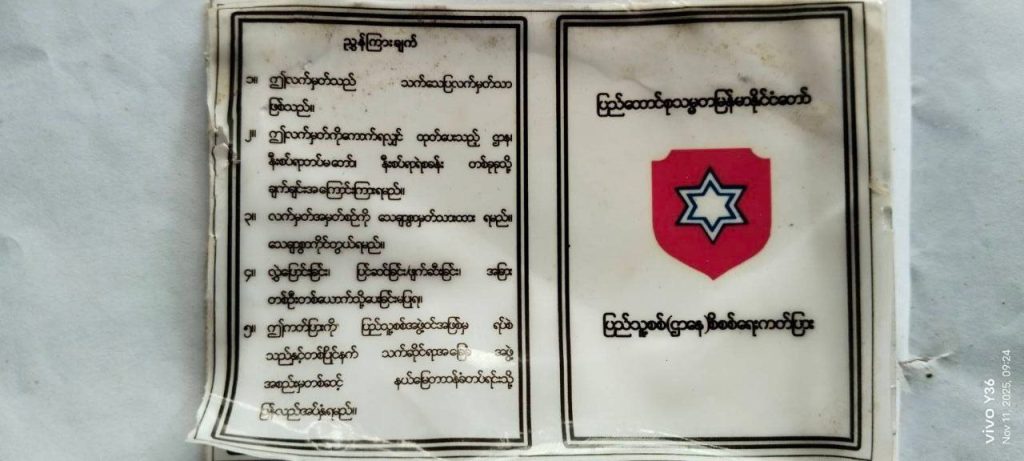 ညွှန်ကြားချက်
၁။ ဤလက်မှတ်သည် သက်သေပြလက်မှတ်သာ
ဖြစ်သည်။
၂။ ဤလက်မှတ်ကိုကောက်ရလျှင် ထုတ်ပေးသည့် ဌာန၊
နီးစပ်ရာတပ်မတော်၊ နီးစပ်ရာရဲစခန်း တစ်ခုခုသို့
ချက်ချင်းအကြောင်းကြားရမည်။
၃။ လက်မှတ်အမှတ်စဉ်ကို သေချာစွာမှတ်သားထား ရမည်။
သေချာစွာကိုင်တွယ်ရမည်။
၄။ လွှဲပြောင်းခြင်း၊ ပြင်ဆင်ခြင်း/ဖျက်ဆီးခြင်း၊ အခြား
တစ်ဦးတစ်ယောက်သို့ပေးခြင်းမပြုရ။
၅။ ဤကတ်ပြားကို ပြည်သူ့စစ်အဖွဲ့ဝင်အဖြစ်မှ ရပ်စဲ
သည်နှင့်တစ်ပြိုင်နက် သက်ဆိုင်ရာ အဖွဲ့
အစည်းမှတစ်ဆင့် နယ်မြေတာဝန်ခံတပ်ရင်းသို့
ပြန်လည်အပ်နှံရမည်။
ပြည်ထောင်စုသမ္မတမြန်မာနိုင်ငံတော်
ပြည်သူ့စစ်(ဌာနေ)စိစစ်ရေးကတ်ပြား
vivo Y36
Nov 11, 2025, 09:24